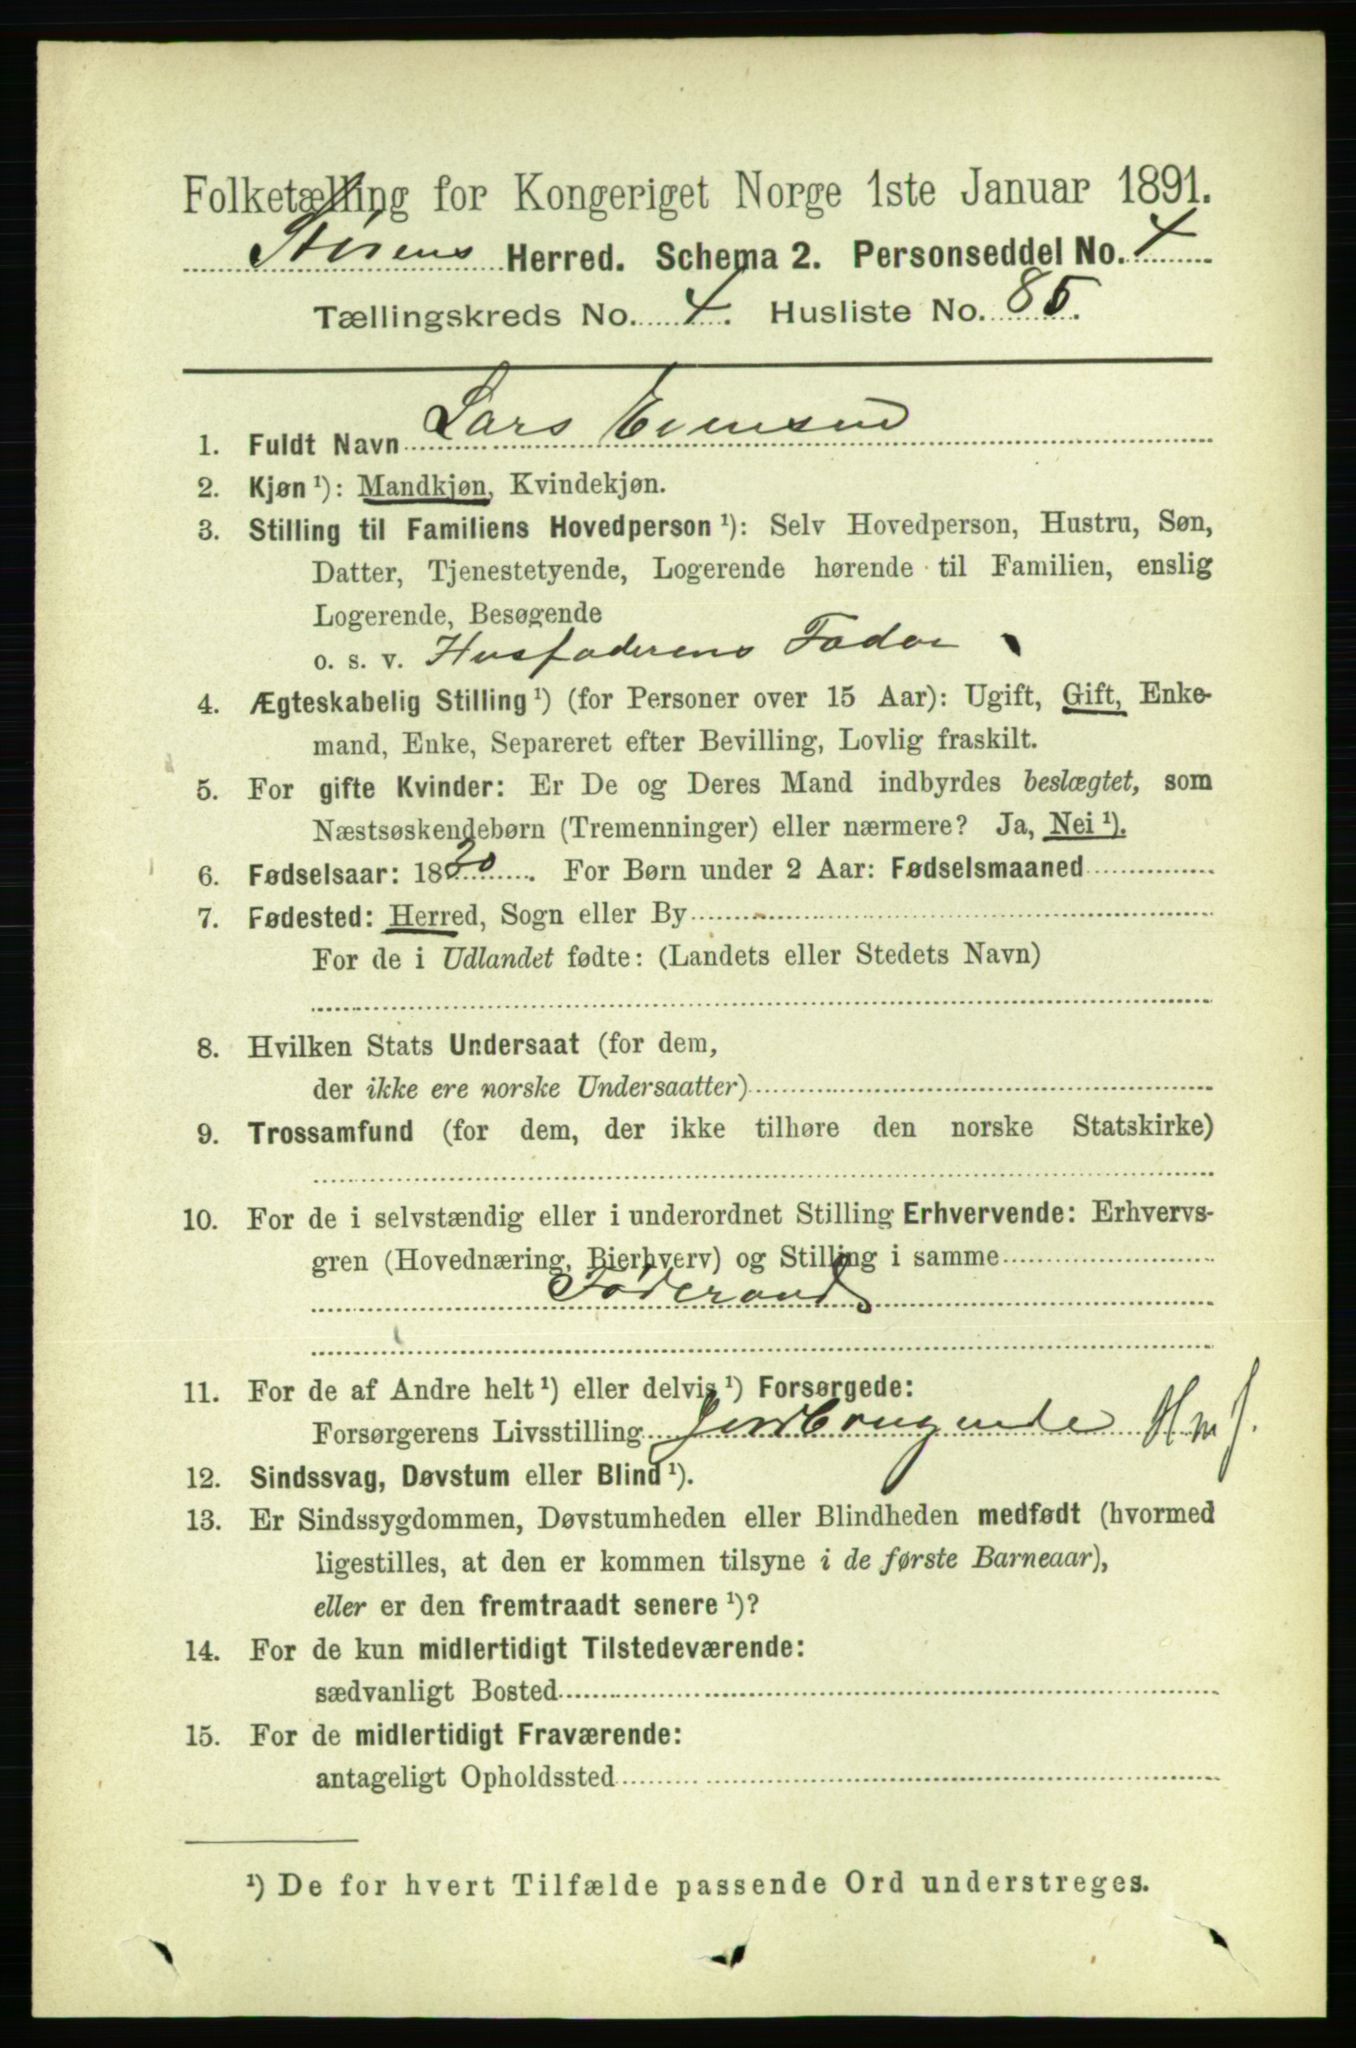 Folketælling for Kongeriget Norge 1ste Januar 1891.
Størens Herred. Schema 2. Personseddel No. 4
Tællingskreds No. 4. Husliste No. 85.
1. Fuldt Navn Lars Evensen
2. Kjøn ¹): Mandkjøn, Kvindekjøn.
3. Stilling til Familiens Hovedperson ¹): Selv Hovedperson, Hustru, Søn,
Datter, Tjenestetyende, Logerende hørende til Familien, enslig
Logerende, Besøgende
o. s. v. Husfaderens Fader
4. Ægteskabelig Stilling ¹) (for Personer over 15 Aar): Ugift, Gift, Enke-
mand, Enke, Separeret efter Bevilling, Lovlig fraskilt.
5. For gifte Kvinder: Er De og Deres Mand indbyrdes beslægtet, som
Næstsøskendebørn (Tremenninger) eller nærmere? Ja, Nei ¹).
6. Fødselsaar: 1820. For Børn under 2 Aar: Fødselsmaaned
7. Fødested: Herred, Sogn eller By
For de i Udlandet fødte: (Landets eller Stedets Navn)
8. Hvilken Stats Undersaat (for dem,
der ikke ere norske Undersaatter)
9. Trossamfund (for dem, der ikke tilhøre den norske Statskirke)
10. For de i selvstændig eller i underordnet Stilling Erhvervende: Erhvervs-
gren (Hovednæring, Bierhverv) og Stilling i samme
Føderaad
11. For de af Andre helt ¹) eller delvis ¹) Forsørgede:
Forsørgerens Livsstilling Jordbrugende
12. Sindssvag, Døvstum eller Blind ¹).
13. Er Sindssygdommen, Døvstumheden eller Blindheden medfødt (hvormed
ligestilles, at den er kommen tilsyne i de første Barneaar),
eller er den fremtraadt senere ¹)?
14. For de kun midlertidigt Tilstedeværende:
sædvanligt Bosted
15. For de midlertidigt Fraværende:
antageligt Opholdssted
¹) De for hvert Tilfælde passende Ord understreges.